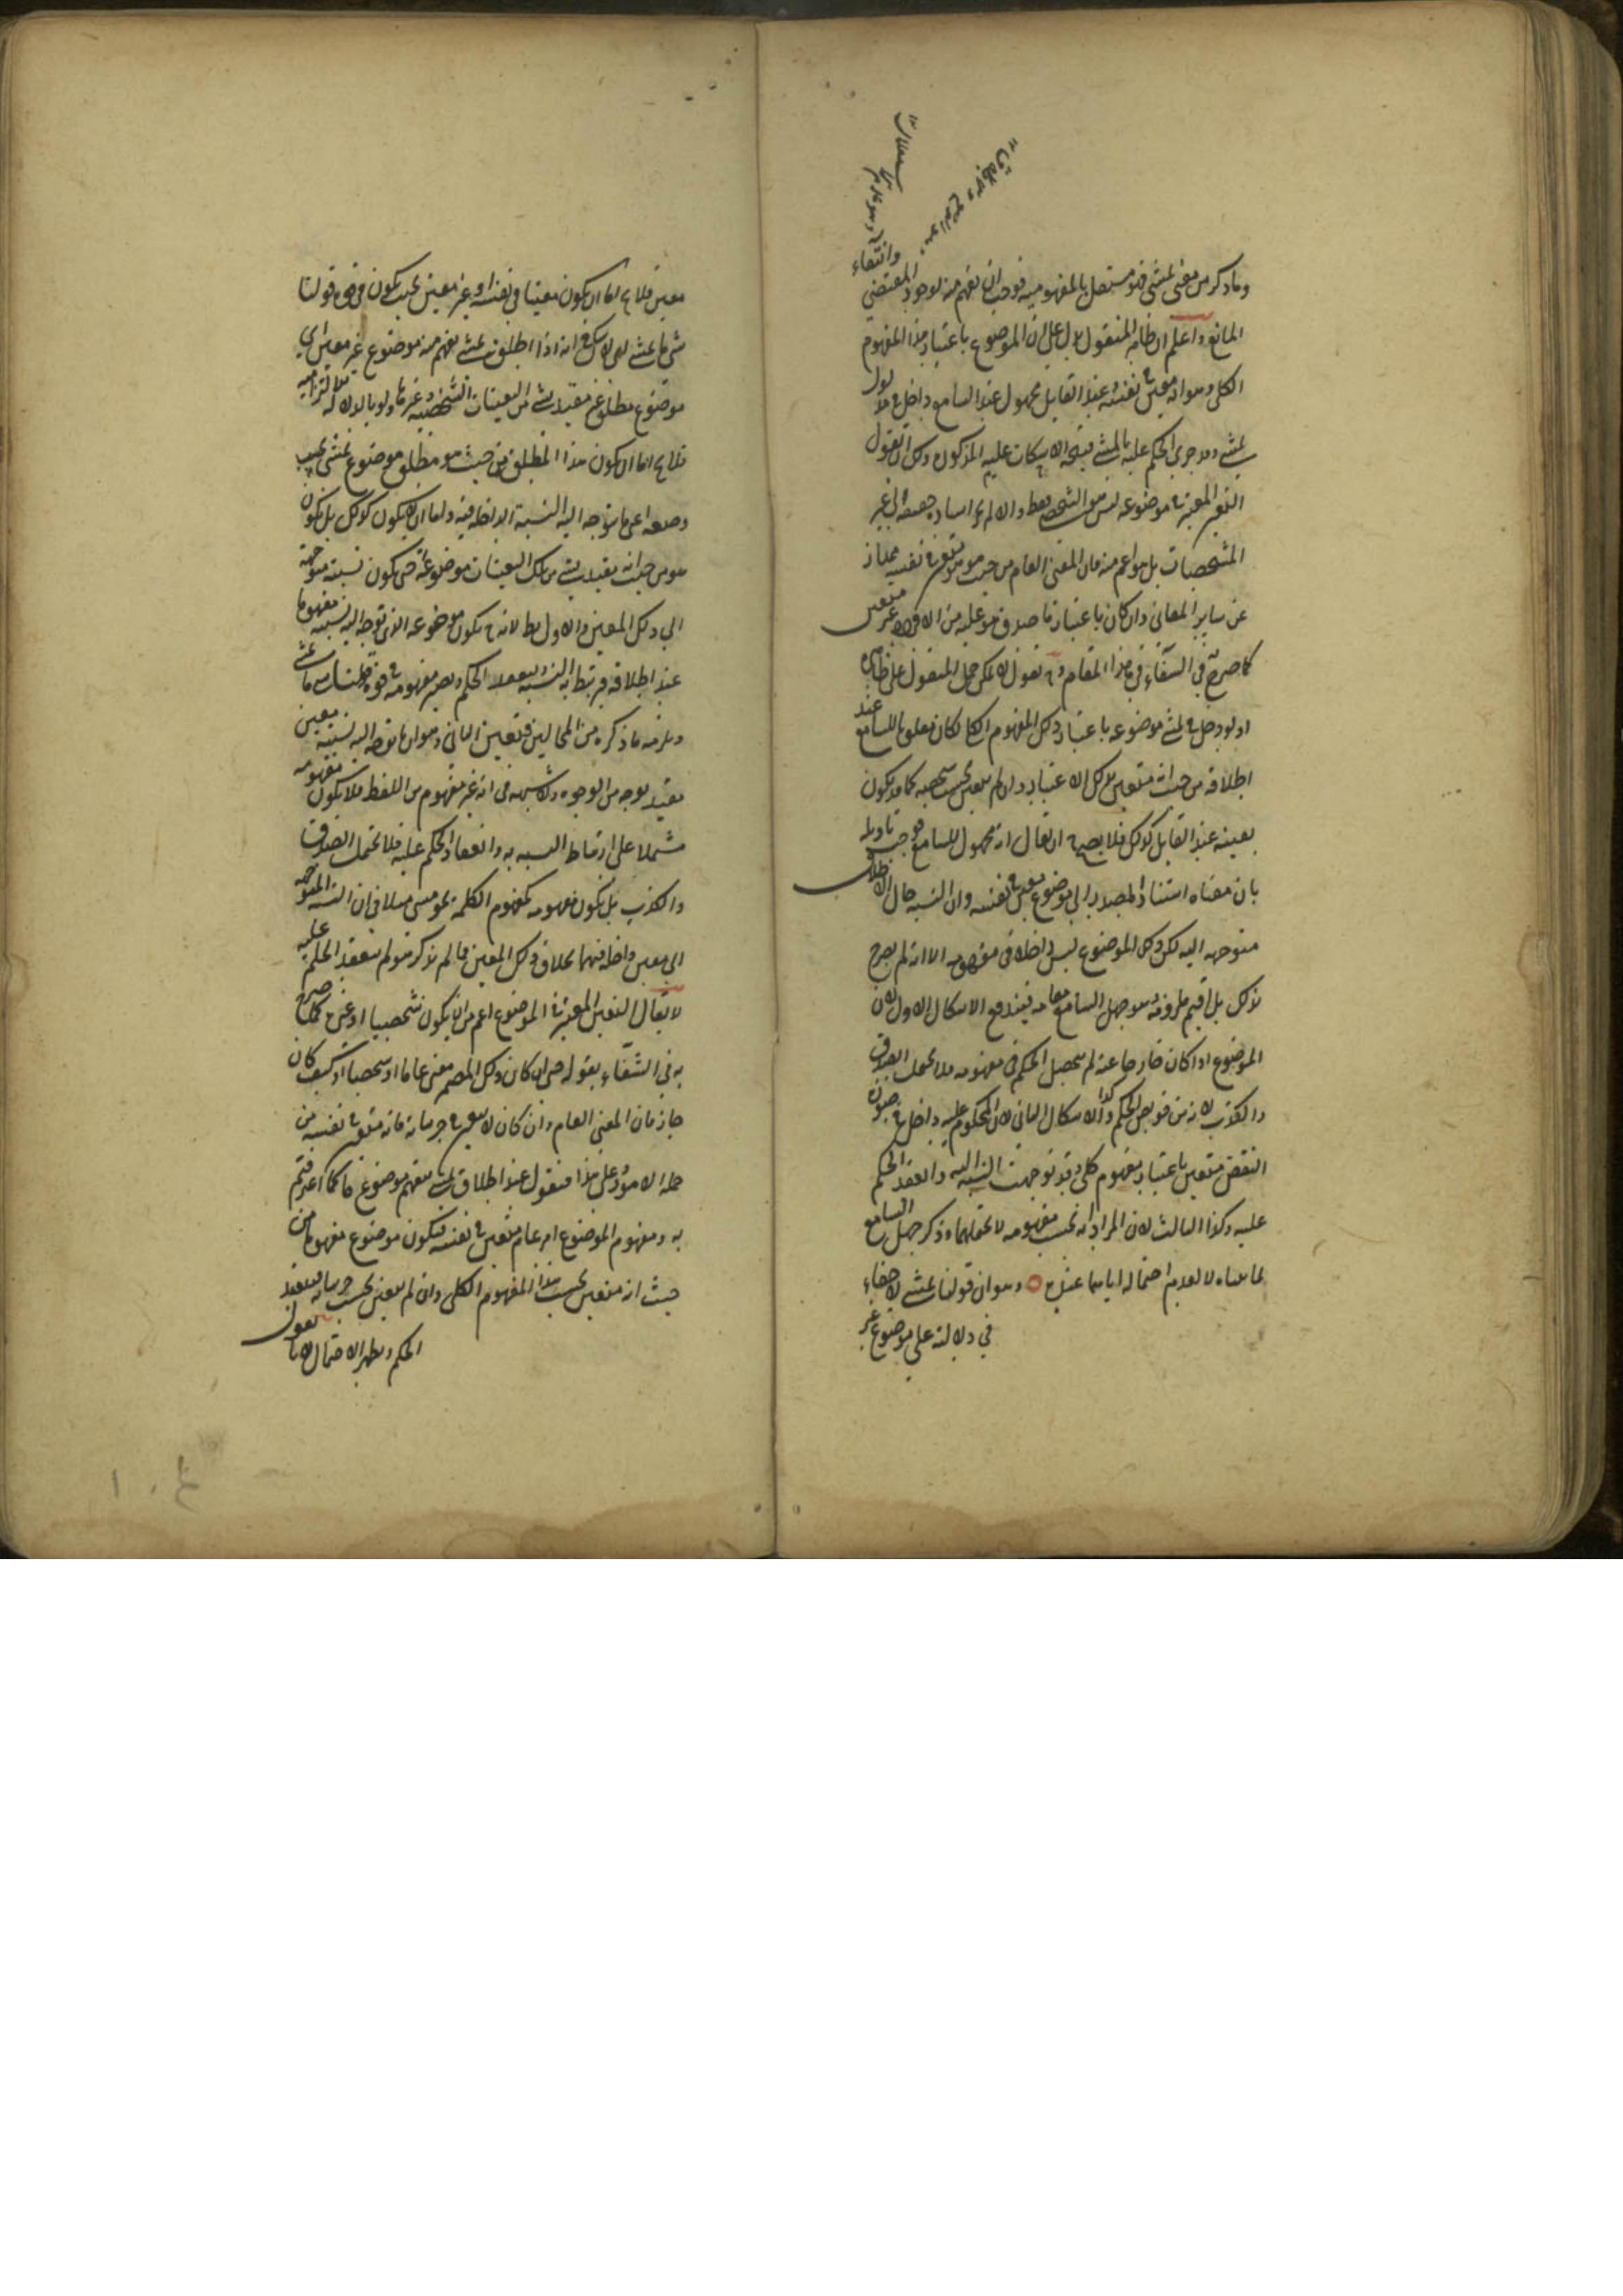 وما ذكر من معنى يمشي فهو مستقل بالمفهومية فوجب ان يفهم منه لوجود المقتضي
وانتفاء
المانع واعلم ان ظاهر المنقول يدل على ان الموضوع باعتبار هذا المفهوم
الكلي وهو انه معين في نفسه وعند القايل مجهول عند السامع داخل في مدلول
يمشي وقد جرى الحكم عليه بالمشي فيتجه الاشكالات عليه المذكورة ولك ان تقول
التعين المعتبر في موضوعه ليس هو الشخص فقط والا لم
المشخصات بل هو اعم منه فان المعنى العام من حيث هو هو متعين في نفسه ممتاز
عن ساير المعاني وان كان باعتبار ما صدق هو عليه من الافراد غير متعين
كما صرح به في الشفاء في هذا المقام وح نقول لا يمكن حمل المنقول على ظاهره
اذ لو دخل في يمشي موضوعه باعتبار ذلك المفهوم الكلي لكان معلوما للسامع عند
اطلاقه من حيث انه متعين بذلك الاعتبار وان لم يتعين بحسب شخصه كما قد يكون
بعينه عند القايل كذلك فلا يصح ح ان يقال انه مجهول للسامع فوجب تاويله
بان معناه استناد المصدر الى موضوع معين في نفسه وان النسبة حال الاطلاق
متوجهه اليه لكن ذلك الموضوع ليس داخلا في مفهومه الا انه لم يصرح
بذلك بل اقيم ملزومه وهو جهل السامع مقامه فيندفع الاشكال الاول لان
الموضوع اذا كان خارجا عنه لم يتحصل الحكم في مفهومه فلا يحتمل الصدق
والكذب لانه من خواص الحكم وكذا الاشكال الثاني لان المحكوم عليه داخل في صورة
النقض متعين باعتبار مفهوم كلي وقد توجهت النسبة اليه وانعقد الحكم
عليه وكذا الثالث لان المراد انه بحسب مفهومه لا يحتملهما وذكر جهل السامع
لما بيناه لا لعدم احتماله اياهما عنده وهو ان قولنا يمشي لا خفاء
في دلالته على موضوع غير
معين فلا يخ اما ان يكون معينا في نفسه او غير معين بحيث يكون في قوة قولنا
شيء ما يمشي انه اذا اطلق يمشي يفهم منه موضوع غير معين اي
موضوع مطلق غير مقيد بشيء من التعينات الشخصية وغيرها ولو بالدلالة الالتزامية
فلا يخ اما ان يكون هذا المطلق من حيث هو مطلق موضوع يمشي بحسب
وضعه اعني ما يتوجه اليه النسبة الداخلة فيه واما ان لا يكون كذلك بل يكون
هو من حيث انه مقيد بشيء من تلك التعينات موضوعا له حتى يكون نسبته متوجهة
الى ذلك المعين والاول بط لانه ح يكون موضوعه الذي توجه اليه نسبته مفهوما
عند اطلاقه فيرتبط به النسبة وينعقد الحكم ويصير مفهومه في قوة قولنا شيء ما يمشي
ويلزمه ما ذكره من المحالين فتعين الثاني وهو ان ما توجه اليه نسبته معين
مقيد بوجه من الوجوه ولا شبهة في انه غير مفهوم من اللفظ فلا يكون مفهومه
مشتملا على ارتباط النسبة به وانعقاد الحكم عليه فلا يحتمل الصدق
والكذب بل يكون مفهومه كمفهوم الكلمة نحو مشى مثلا في ان النسبة المتوجهة
الى معين داخلة فيهما بخلاف ذلك المعين فما لم يذكر هو لم ينعقد الحكم عليه
لا يقال التعين المعتبر في الموضوع اعم من ان يكون شخصيا او غيره كما صرح
به في الشفاء بقوله حتى ان كان ذلك المضمر معنى عاما او شخصيا او كيف كان
جاز فان المعنى العام وان كان لا يتعين في جزئياته فانه متعين في نفسه من
جملة الامور وعلى هذا فنقول عند اطلاق يمشي يفهم موضوع ما كما اعترفتم
به ومفهوم الموضوع امر عام متعين في نفسه فيكون موضوع مفهوما من
حيث انه متعين بحسب هذا المفهوم الكلي وان لم يتعين بحسب جزئياته فينعقد
الحكم ويظهر الاحتمال لانا نقول